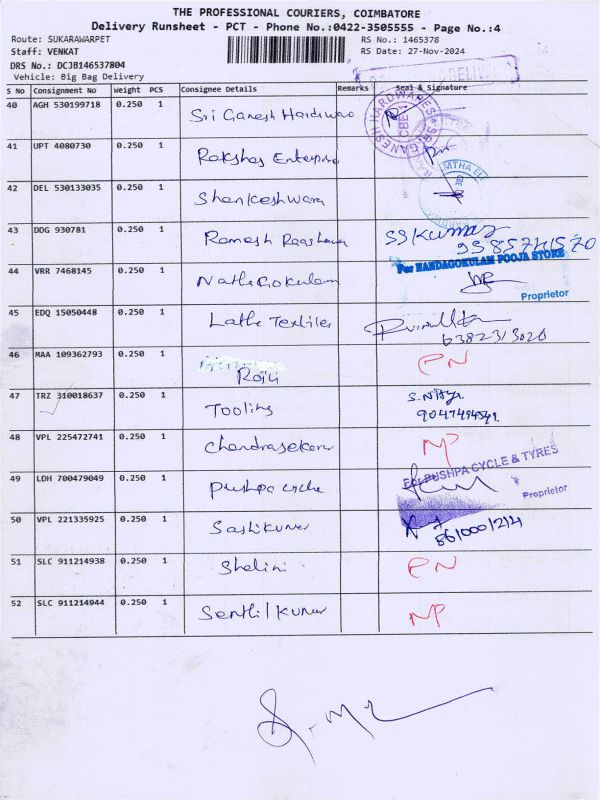 THE PROFESSIONAL COURIERS, COIMBATORE
Delivery Runsheet - PCT - Phone No.:0422-3505555 - Page No.:4
Route: SUKARAWARPET RS No.: 1465378
Staff: VENKAT RS Date: 27-Nov-2024
DRS No.: DCJB146537804
Vehicle: Big Bag Delivery
S No Consignment No Weight PCS Consignee Details Remarks Seal & Signature
40 AGH 530199718 0.250 1 Sri Ganesh Hardwao
41 UPT 4080730 0.250 1 Rakshas Enterprise
42 DEL 530133035 0.250 1 Shankeshwara
43 DDG 930781 0.250 1 Ramesh SSKumar
44 VRR 7468145 0.250 1 For NANDAGOKULAM POOJA STORE
Proprietor
45 EDQ 15050448 0.250 1 Latha Textiles
46 MAA 109362793 0.250 1 Raji PN
47 TRZ 310018637 0.250 1 Tooling S. Nitya
48 VPL 225472741 0.250 1 Chandrasekar NP
49 LDH 700479049 0.250 1 Pushpa cycle For PUSHPA CYCLE & TYRES
Proprietor
50 VPL 221335925 0.250 1 Sashikumar
51 SLC 911214938 0.250 1 Shalini PN
52 SLC 911214944 0.250 1 Senthil Kumar NP